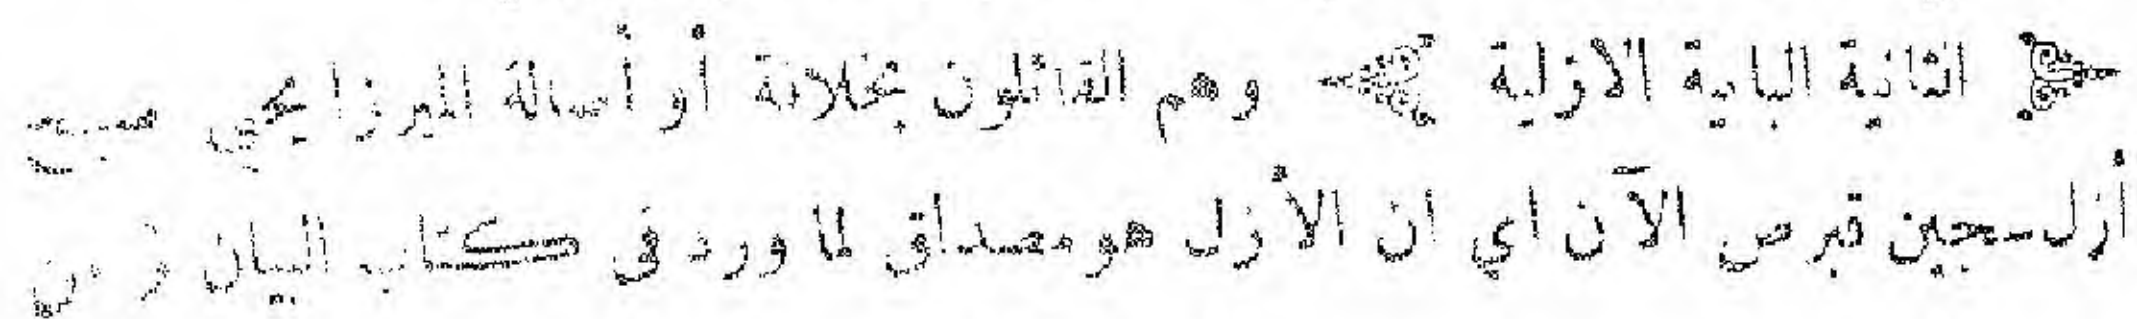 الثانية البابية الازلية وهم القائلون بخلافة أو أصالة الميرزا يحيى صبح
أزل سجين قبرص الآن اي ان الأزل هو مصداق لما ورد فى كتاب البيان